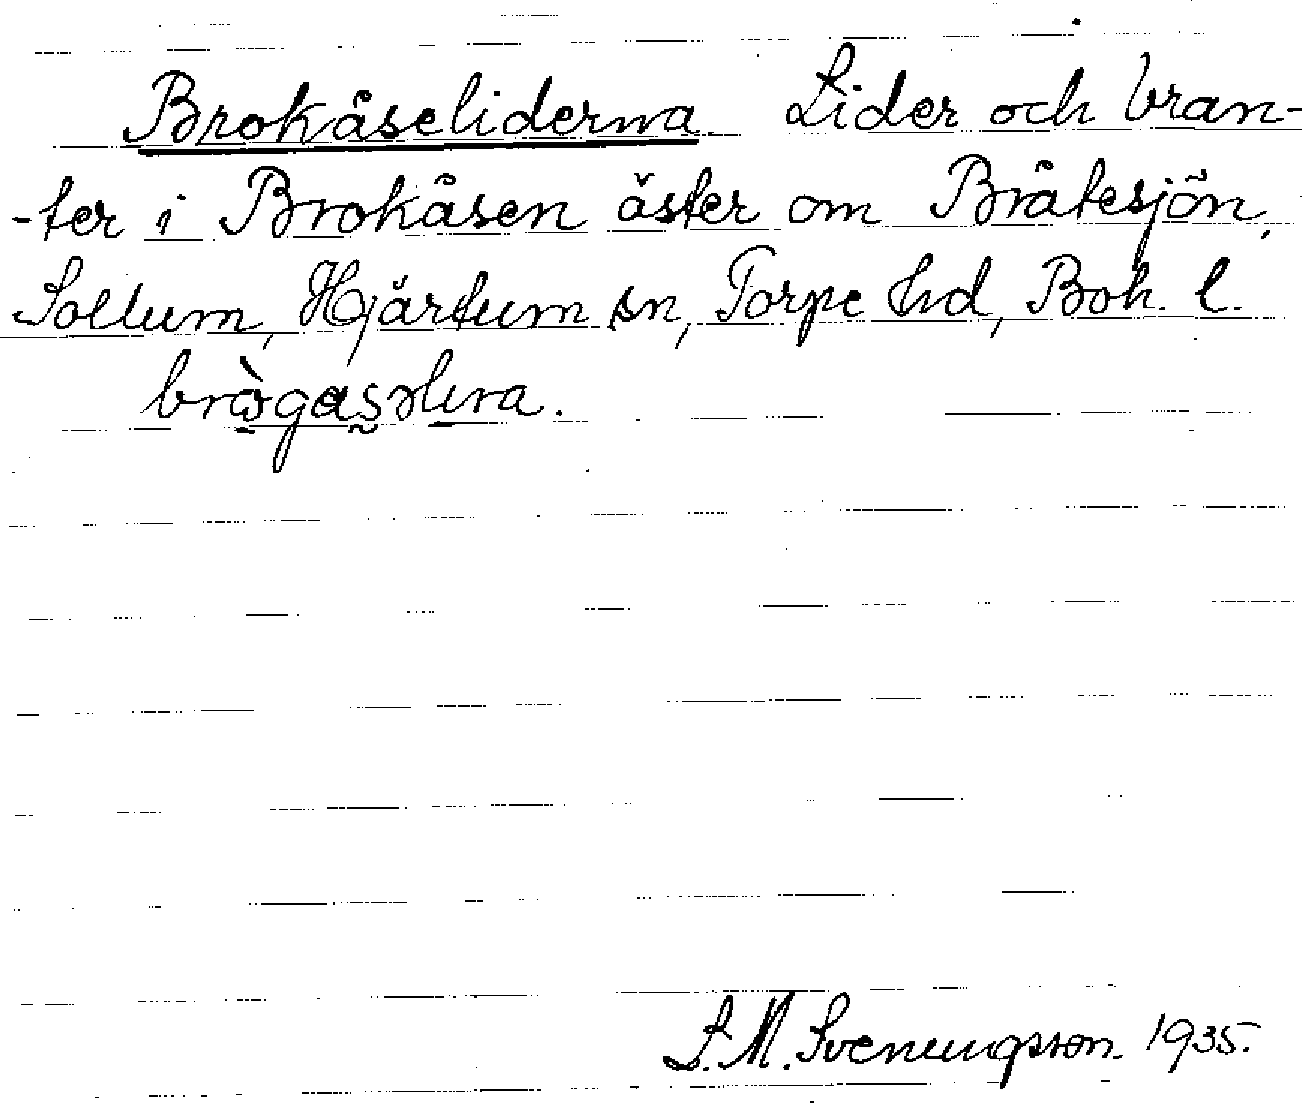 Brokåseliderna. Lider och bran-
-ter i Brokåsen öster om Bråtesjön,
Sollum, Hjärtum sn, Torpe hd, Boh. l.
S. M. Svenungsson 1935.